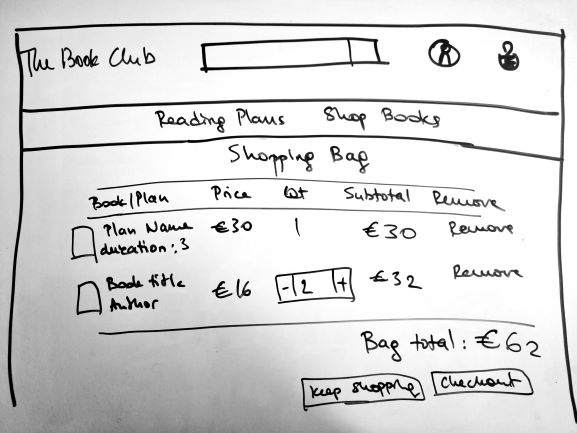 The Book Club R
Reading Plans Shop Books
Shopping Bag
Book/Plan Price Qt Subtotal Remove
Plan Name €30 1 €30 Remove
duration: 3
Book title €16 - 2 + €32 Remove
Author
Bag total: €62
Keep shopping Checkout